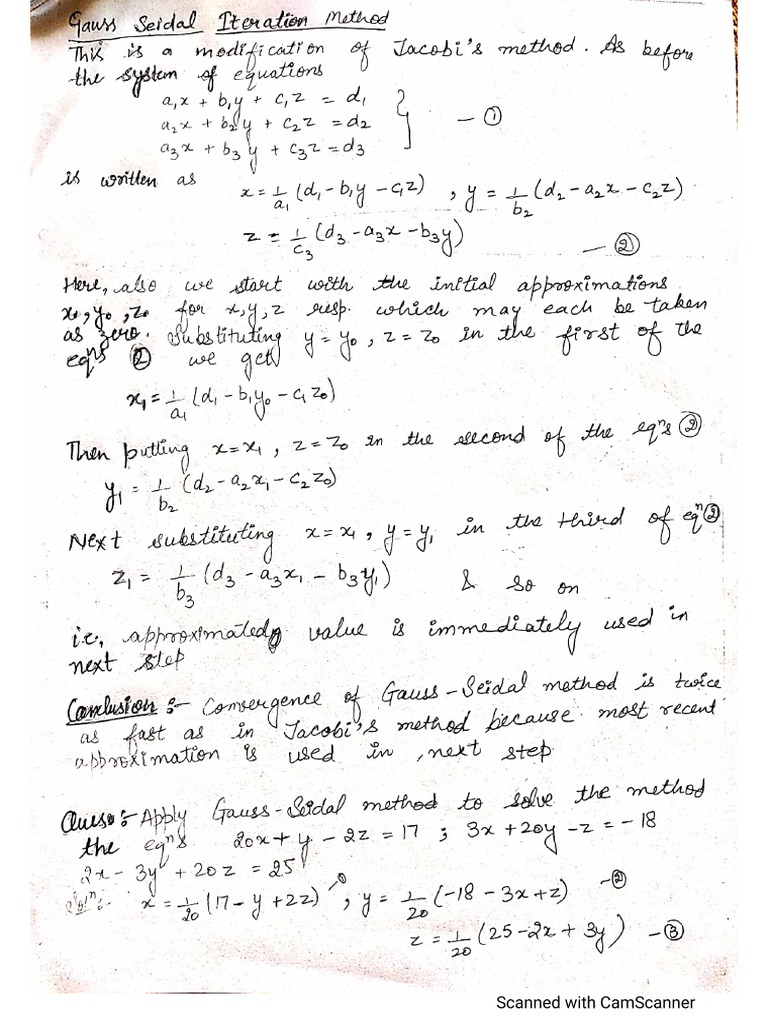 Gauss Seidal Iteration Method
This is a modification of Jacobi's method. As before
the system of equations
a₁x + b₁y + c₁z = d₁
a₂x + b₂y + c₂z = d₂ } — ①
a₃x + b₃y + c₃z = d₃
is written as x = 1/a₁ (d₁ - b₁y - c₁z) , y = 1/b₂ (d₂ - a₂x - c₂z)
z = 1/c₃ (d₃ - a₃x - b₃y) — ②
Here, also we start with the initial approximations
x₀, y₀, z₀ for x, y, z resp. which may each be taken
as zero. Substituting y = y₀, z = z₀ in the first of the
eqⁿs ② we get
x₁ = 1/a₁ (d₁ - b₁y₀ - c₁z₀)
Then putting x = x₁, z = z₀ in the second of the eqⁿs ②
y₁ = 1/b₂ (d₂ - a₂x₁ - c₂z₀)
Next substituting x = x₁, y = y₁ in the third of eqⁿ ②
z₁ = 1/b₃ (d₃ - a₃x₁ - b₃y₁) & so on
i.e, approximated value is immediately used in
next step
Conclusion :- Convergence of Gauss-Seidal method is twice
as fast as in Jacobi's method because most recent
approximation is used in next step
Ques:- Apply Gauss-Seidal method to solve the method
the eqⁿs 20x + y - 2z = 17 ; 3x + 20y - z = -18
2x - 3y + 20z = 25
Solⁿ: x = 1/20 (17 - y + 2z) , y = 1/20 (-18 - 3x + z) -②
z = 1/20 (25 - 2x + 3y) -③
Scanned with CamScanner